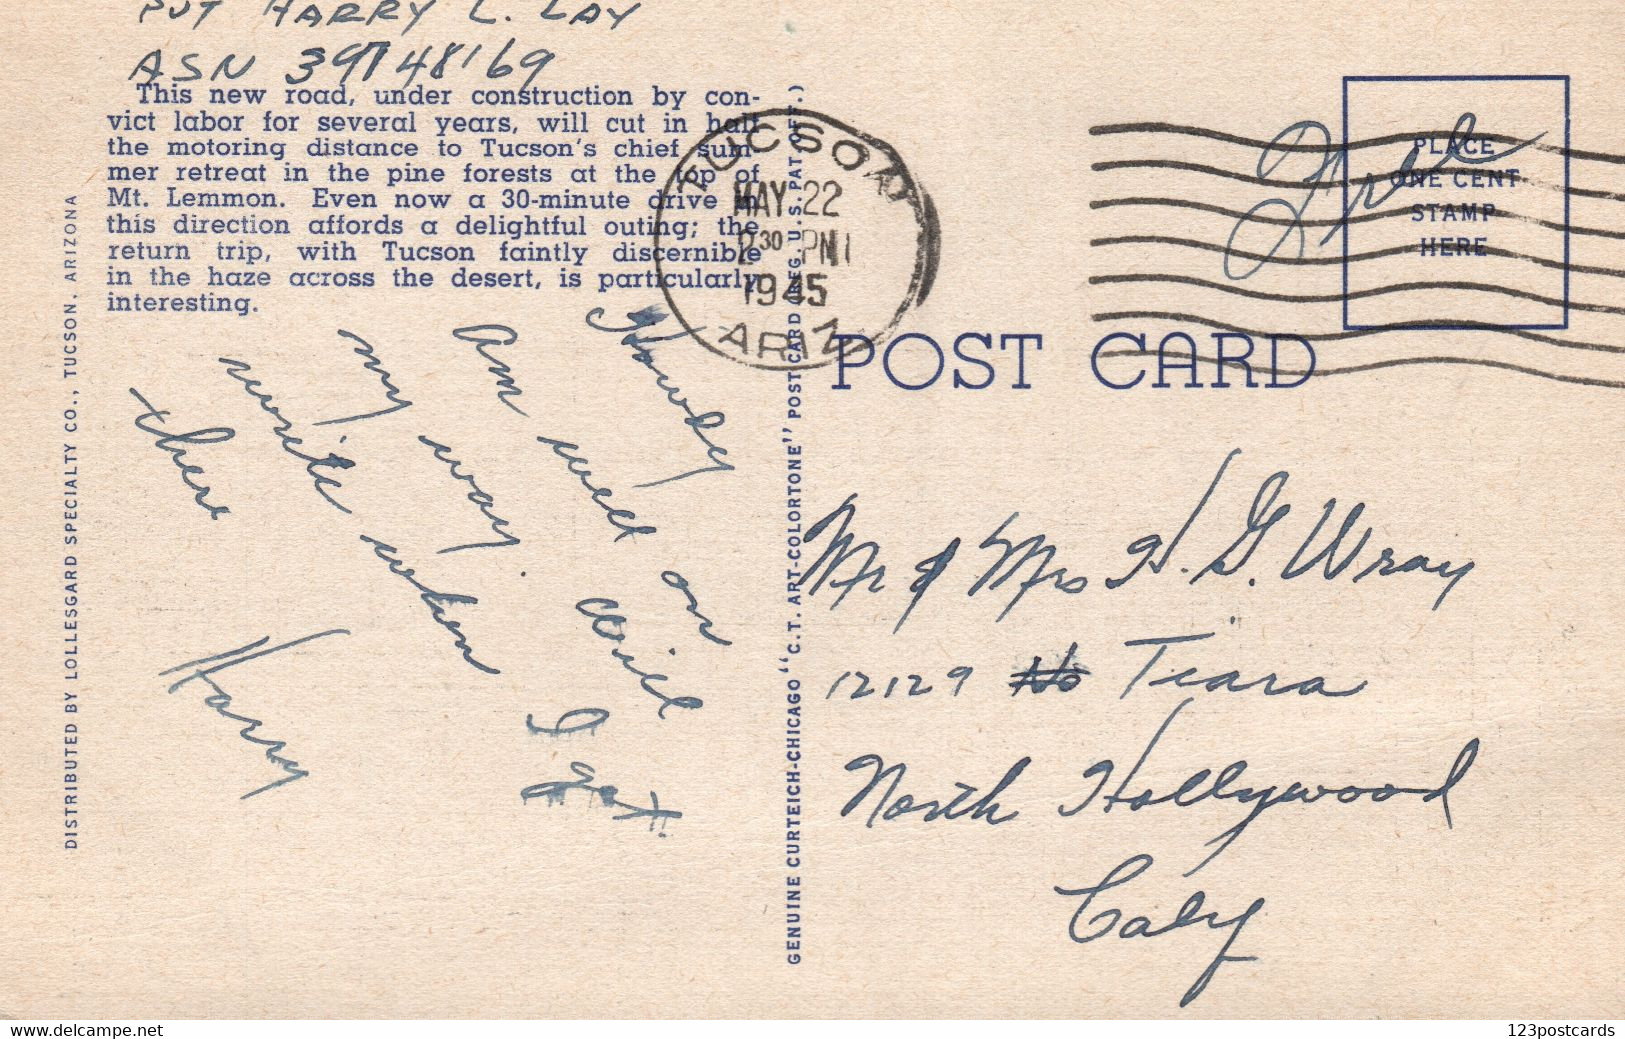 PVT HARRY L. LAY
ASN 39748169
This new road, under construction by con-
vict labor for several years, will cut in half
the motoring distance to Tucson's chief sum-
mer retreat in the pine forests at the top of
Mt. Lemmon. Even now a 30-minute drive in
this direction affords a delightful outing; the
return trip, with Tucson faintly discernible
in the haze across the desert, is particularly
interesting.
Howdy
Am well on
my way. Will
write when I get
there
Harry
DISTRIBUTED BY LOLLESGARD SPECIALTY CO., TUCSON, ARIZONA
GENUINE CURTEICH-CHICAGO "C.T. ART-COLORTONE" POST CARD (REG. U.S. PAT. OFF.)
TUCSON
MAY 22
2 30 PM
1945
ARIZ.
Free
PLACE
ONE CENT
STAMP
HERE
POST CARD
Mr & Mrs H. G. Wray
12129 No Tiara
North Hollywood
Calif
www.delcampe.net
123postcards